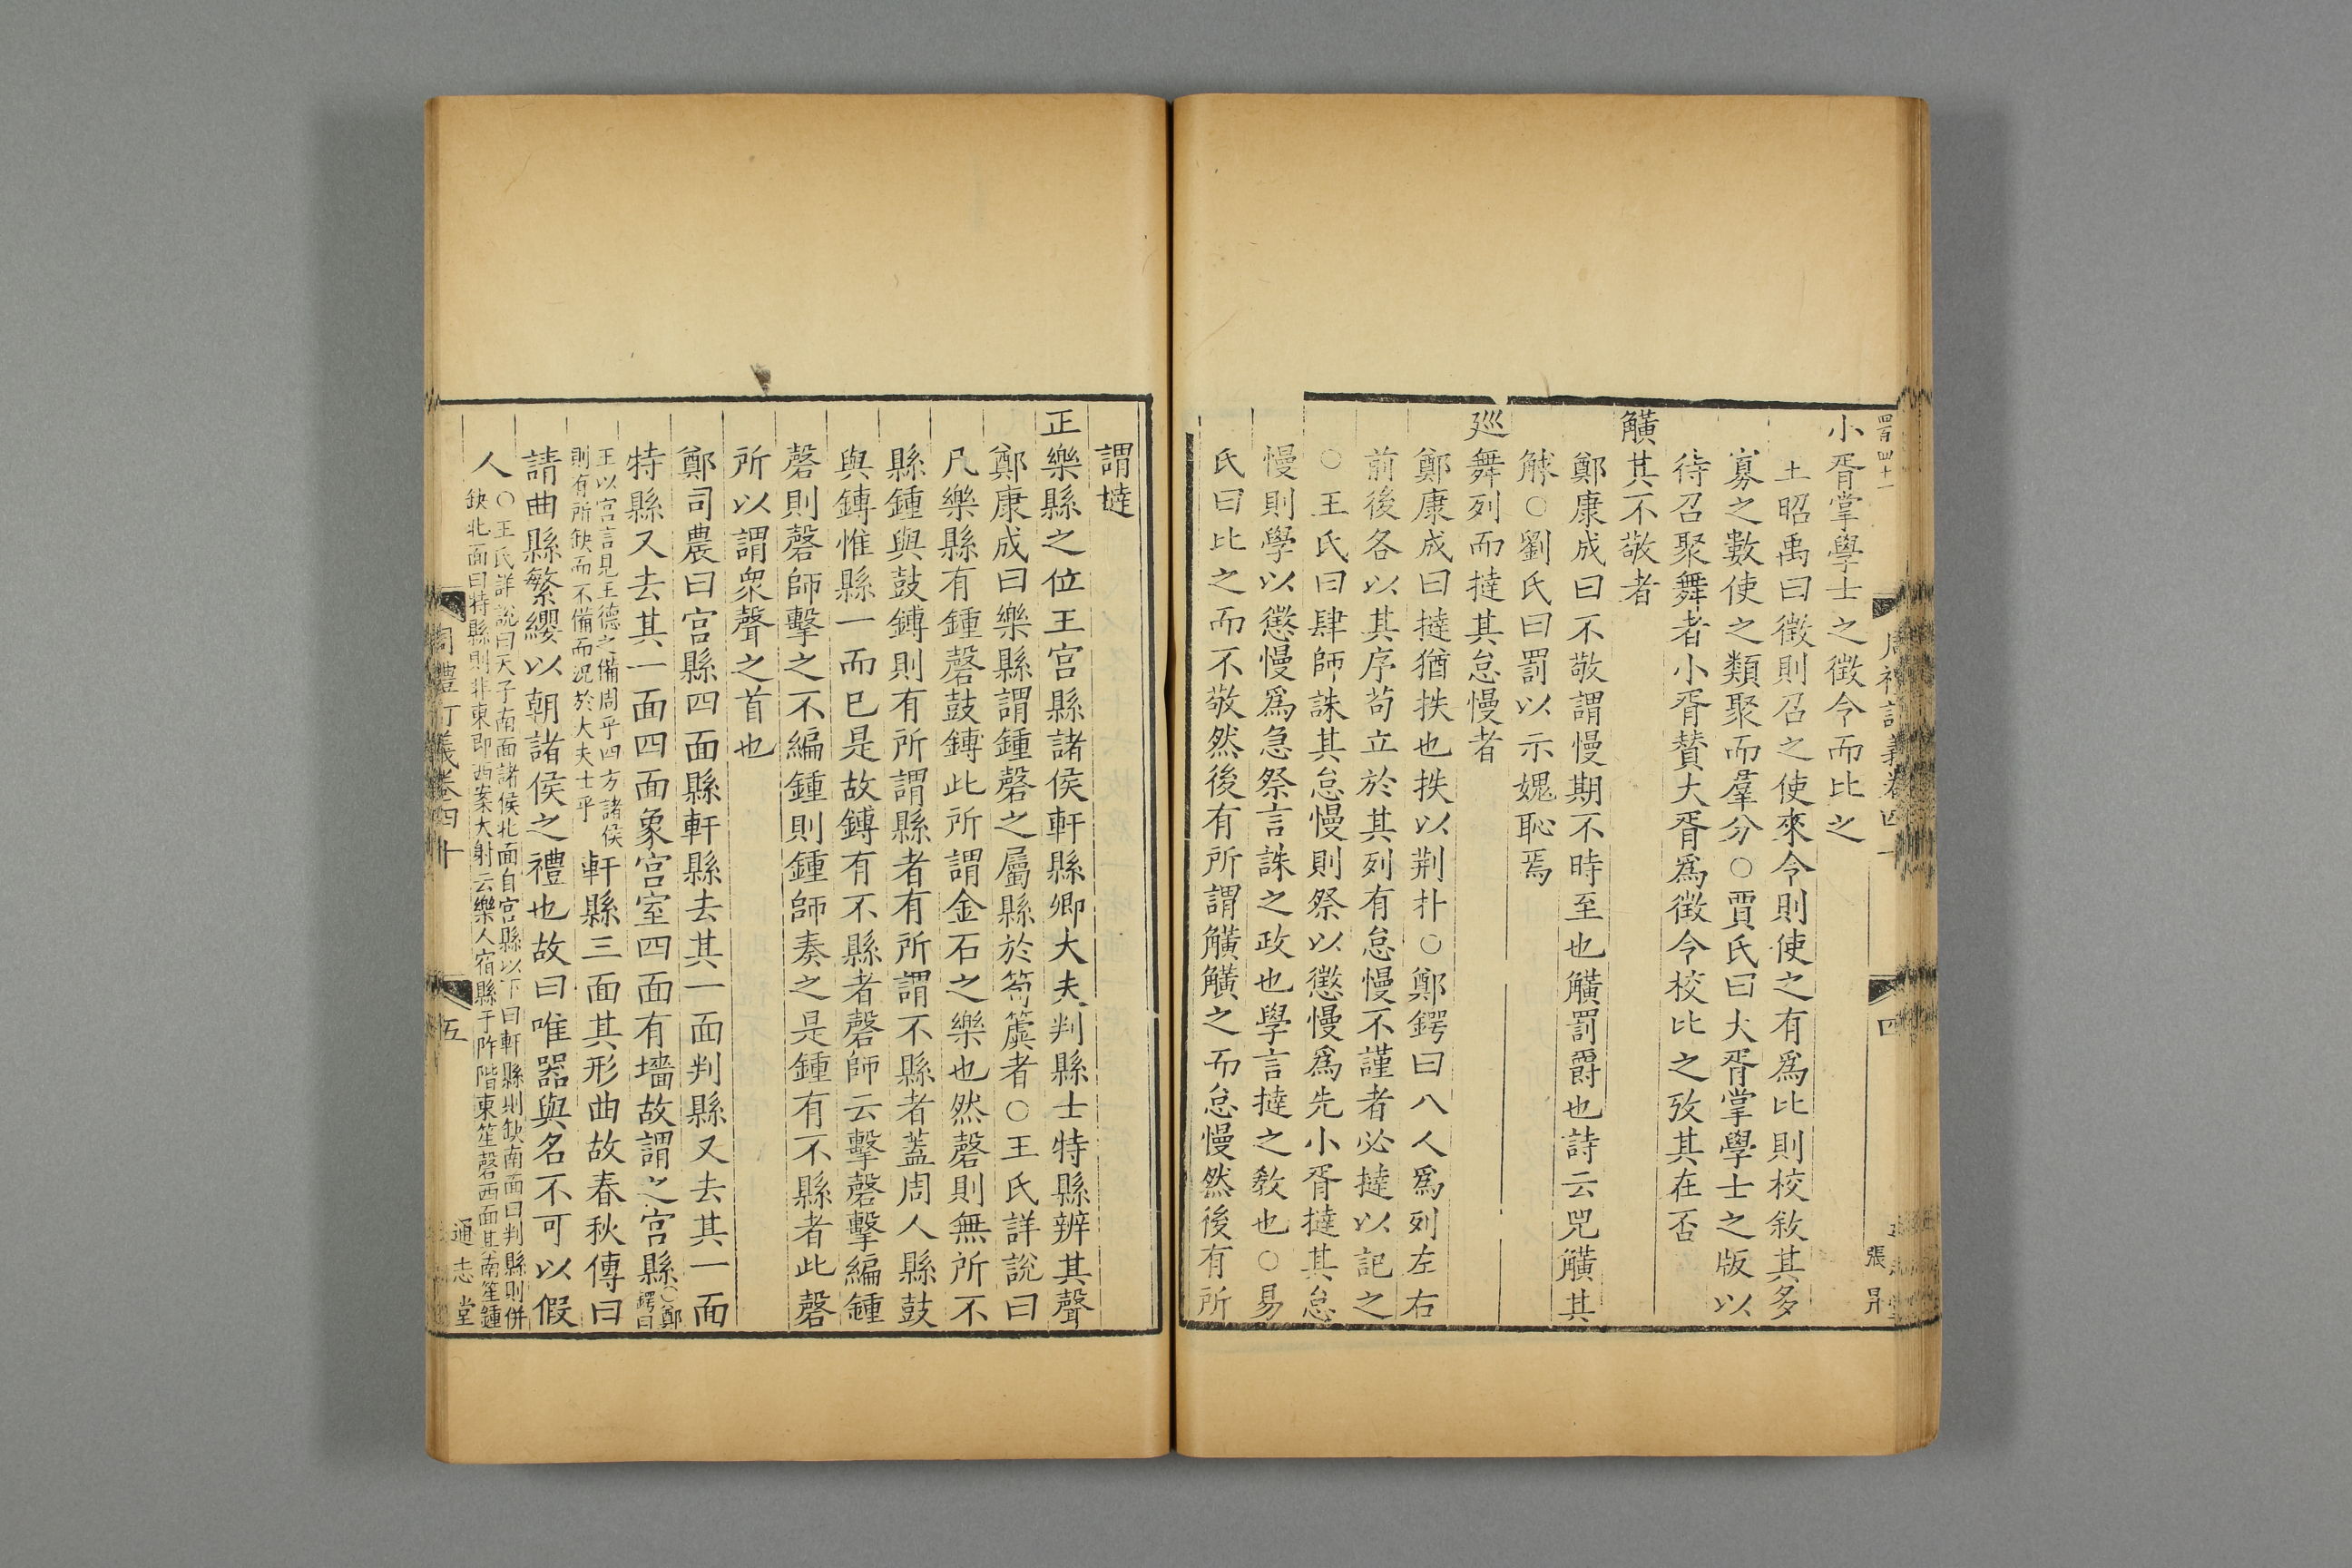 四百四十一
小胥掌學士之徵令而比之
王昭禹曰徵則召之使來令則使之有爲比則校敘其多
寡之數使之類聚而羣分○賈氏曰大胥掌學士之版以
待召聚舞者小胥賛大胥爲徵令校比之攷其在否
觵其不敬者
鄭康成曰不敬謂慢期不時至也觵罰爵也詩云兕觵其
觩○劉氏曰罰以示媿恥焉
廵舞列而撻其怠慢者
鄭康成曰撻猶抶也抶以荆扑○鄭鍔曰八人爲列左右
前後各以其序苟立於其列有怠慢不謹者必撻以記之
○王氏曰肆師誅其怠慢則祭以懲慢爲先小胥撻其怠
慢則學以懲慢爲急祭言誅之政也學言撻之敎也○易
氏曰比之而不敬然後有所謂觵觵之而怠慢然後有所
四
張昇
謂撻
正樂縣之位王宫縣諸侯軒縣卿大夫判縣士特縣辨其聲
鄭康成曰樂縣謂鍾磬之屬縣於筍簴者○王氏詳說曰
凡樂縣有鍾磬鼓鎛此所謂金石之樂也然磬則無所不
縣鍾與鼓鎛則有所謂縣者有所謂不縣者蓋周人縣鼓
與鎛惟縣一而已是故鎛有不縣者磬師云擊磬擊編鍾
磬則磬師擊之不編鍾則鍾師奏之是鍾有不縣者此磬
所以謂衆聲之首也
鄭司農曰宫縣四面縣軒縣去其一面判縣又去其一面
特縣又去其一面四面象宫室四面有墻故謂之宫縣○鄭鍔曰
王以宫言見王德之備周乎四方諸侯
則有所缺而不備而況於大夫士乎
軒縣三面其形曲故春秋傳曰
請曲縣繁纓以朝諸侯之禮也故曰唯器與名不可以假
人
○王氏詳說曰天子南面諸侯北面自宫縣以下曰軒縣則缺南面曰判縣則併
缺北面曰特縣則非東即西案大射云樂人宿縣于阼階東笙磬西面其南笙鍾
周禮訂義卷四十
五
通志堂